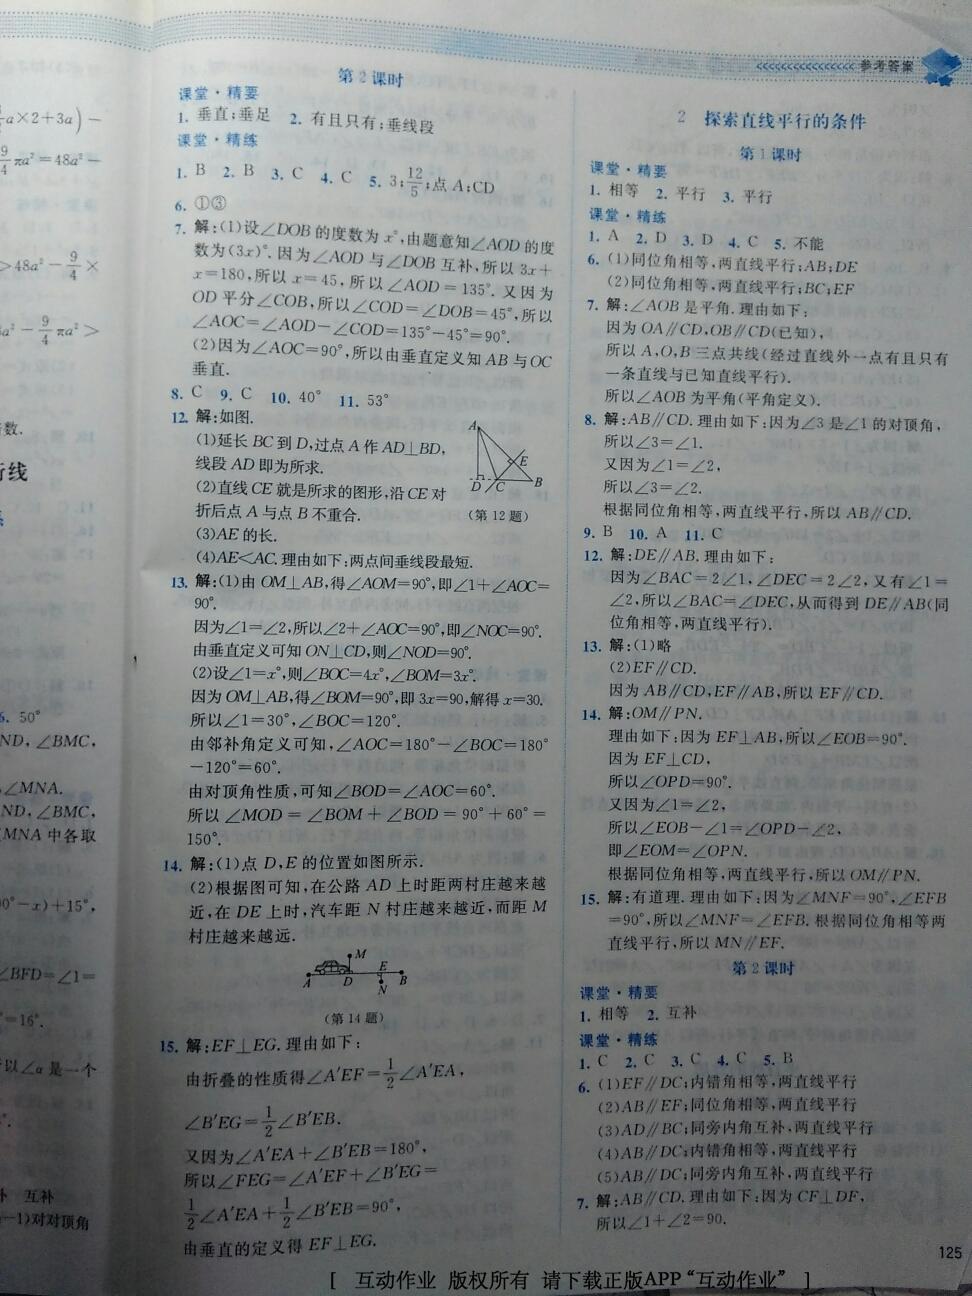 参考答案
a×2+3a)－
9/4 πa²=48a²－
>48a²－9/4×
a²－9/4 πa²>
数.
行线
6. 50°
ND,∠BMC,
∠MNA.
ND,∠BMC,
MNA中各取
0°－x)+15°,
∠BFD=∠1=
=16°.
以∠α是一个
补 互补
－1)对对顶角
第2课时
课堂·精要
1. 垂直;垂足 2. 有且只有;垂线段
课堂·精练
1. B 2. B 3. C 4. C 5. 3;12/5;点A;CD
6. ①③
7. 解:(1)设∠DOB的度数为x°,由题意知∠AOD的度
数为(3x)°.因为∠AOD与∠DOB互补,所以3x+
x=180,所以x=45,所以∠AOD=135°.又因为
OD平分∠COB,所以∠COD=∠DOB=45°,所以
∠AOC=∠AOD－∠COD=135°－45°=90°.
(2)因为∠AOC=90°,所以由垂直定义知AB与OC
垂直.
8. C 9. C 10. 40° 11. 53°
12. 解:如图.
(1)延长BC到D,过点A作AD⊥BD,
线段AD即为所求.
(2)直线CE就是所求的图形,沿CE对
折后点A与点B不重合.
(3)AE的长.
(4)AE<AC.理由如下:两点间垂线段最短.
A
E
D C B
(第12题)
13. 解:(1)由OM⊥AB,得∠AOM=90°,即∠1+∠AOC=
90°.
因为∠1=∠2,所以∠2+∠AOC=90°,即∠NOC=90°.
由垂直定义可知ON⊥CD,则∠NOD=90°.
(2)设∠1=x°,则∠BOC=4x°,∠BOM=3x°.
因为OM⊥AB,得∠BOM=90°,即3x=90,解得x=30.
所以∠1=30°,∠BOC=120°.
由邻补角定义可知,∠AOC=180°－∠BOC=180°
－120°=60°.
由对顶角性质,可知∠BOD=∠AOC=60°.
所以∠MOD=∠BOM+∠BOD=90°+60°=
150°.
14. 解:(1)点D,E的位置如图所示.
(2)根据图可知,在公路AD上时距两村庄越来越
近,在DE上时,汽车距N村庄越来越近,而距M
村庄越来越远.
M
E
A D B
N
(第14题)
15. 解:EF⊥EG.理由如下:
由折叠的性质得∠A′EF=1/2∠A′EA,
∠B′EG=1/2∠B′EB.
又因为∠A′EA+∠B′EB=180°,
所以∠FEG=∠A′EF+∠B′EG=
1/2∠A′EA+1/2∠B′EB=90°,
由垂直的定义得EF⊥EG.
2 探索直线平行的条件
第1课时
课堂·精要
1. 相等 2. 平行 3. 平行
课堂·精练
1. A 2. D 3. D 4. C 5. 不能
6. (1)同位角相等,两直线平行;AB;DE
(2)同位角相等,两直线平行;BC;EF
7. 解:∠AOB是平角.理由如下:
因为OA∥CD,OB∥CD(已知),
所以A,O,B三点共线(经过直线外一点有且只有
一条直线与已知直线平行).
所以∠AOB为平角(平角定义).
8. 解:AB∥CD.理由如下:因为∠3是∠1的对顶角,
所以∠3=∠1.
又因为∠1=∠2,
所以∠3=∠2.
根据同位角相等,两直线平行,所以AB∥CD.
9. B 10. A 11. C
12. 解:DE∥AB.理由如下:
因为∠BAC=2∠1,∠DEC=2∠2,又有∠1=
∠2,所以∠BAC=∠DEC,从而得到DE∥AB(同
位角相等,两直线平行).
13. 解:(1)略
(2)EF∥CD.
因为AB∥CD,EF∥AB,所以EF∥CD.
14. 解:OM∥PN.
理由如下:因为EF⊥AB,所以∠EOB=90°.
因为EF⊥CD,
所以∠OPD=90°.
又因为∠1=∠2,
所以∠EOB－∠1=∠OPD－∠2,
即∠EOM=∠OPN.
根据同位角相等,两直线平行,所以OM∥PN.
15. 解:有道理.理由如下:因为∠MNF=90°,∠EFB
=90°,所以∠MNF=∠EFB.根据同位角相等两
直线平行,所以MN∥EF.
第2课时
课堂·精要
1. 相等 2. 互补
课堂·精练
1. C 2. C 3. C 4. C 5. B
6. (1)EF∥DC;内错角相等,两直线平行
(2)AB∥EF;同位角相等,两直线平行
(3)AD∥BC;同旁内角互补,两直线平行
(4)AB∥DC;内错角相等,两直线平行
(5)AB∥DC;同旁内角互补,两直线平行
7. 解:AB∥CD.理由如下:因为CF⊥DF,
所以∠1+∠2=90.
125
[ 互动作业 版权所有 请下载正版APP“互动作业” ]